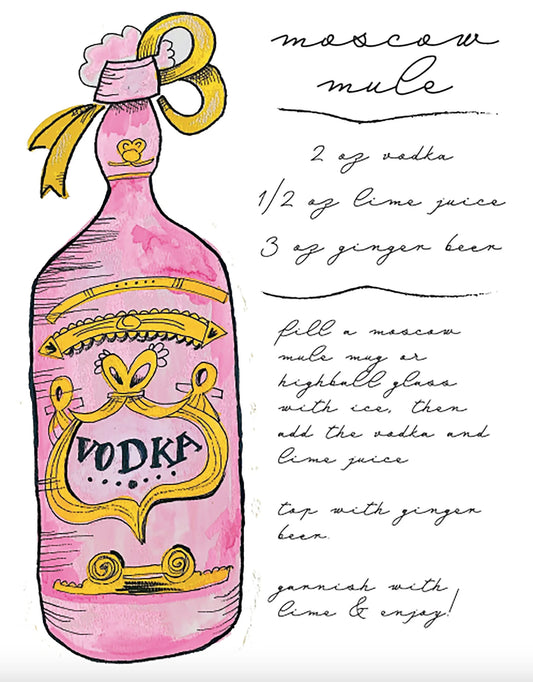 moscow
mule
2 oz vodka
1/2 oz lime juice
3 oz ginger beer
fill a moscow
mule mug or
highball glass
with ice, then
add the vodka and
lime juice
top with ginger
beer.
garnish with
lime & enjoy!
VODKA